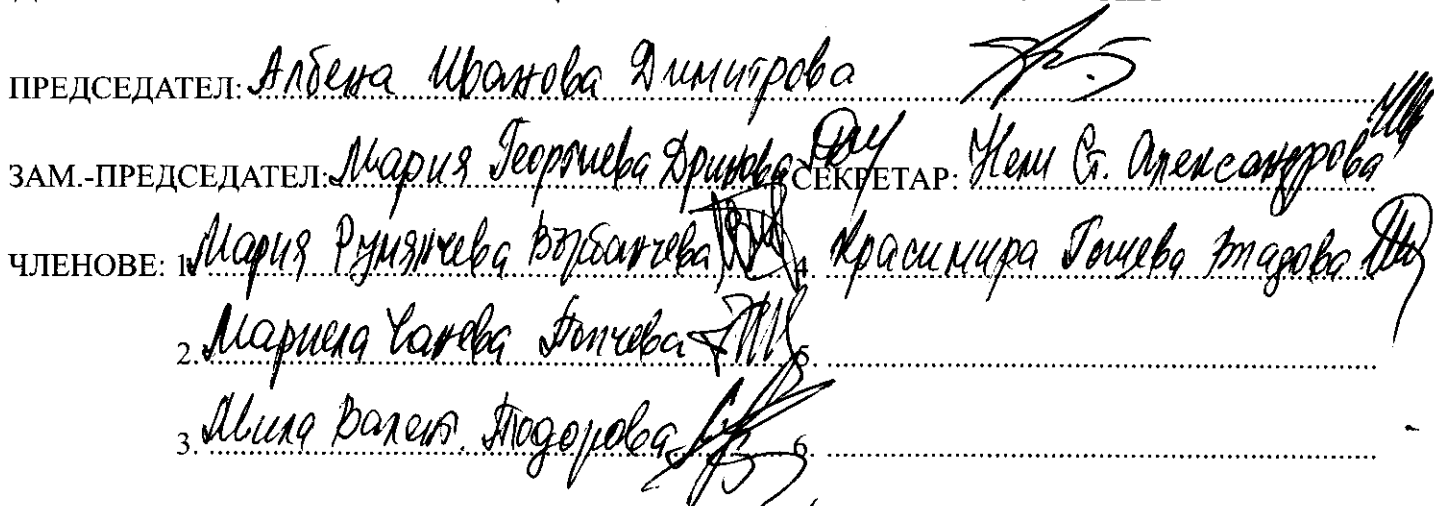 ПРЕДСЕДАТЕЛ: Албена Иванова Димитрова
ЗАМ.-ПРЕДСЕДАТЕЛ: Мария Георгиева Дринова СЕКРЕТАР: Нели Ст. Александрова
ЧЛЕНОВЕ: 1. Мария Румянчева Върбанчева 4. Красимира Гошева Владова
2. Мариела Чанева Топчева 5.
3. Валент. Тодорова 6.